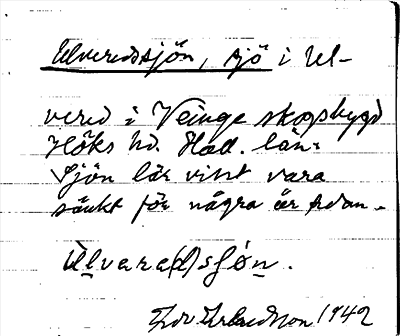 Ulveredssjön, sjö i Ul-
vered i Veinge skogsbygd
Höks hd. Hall. län.
Sjön lär visst vara
sänkt för några år sedan.
Ulvara(d)sjön.
1942